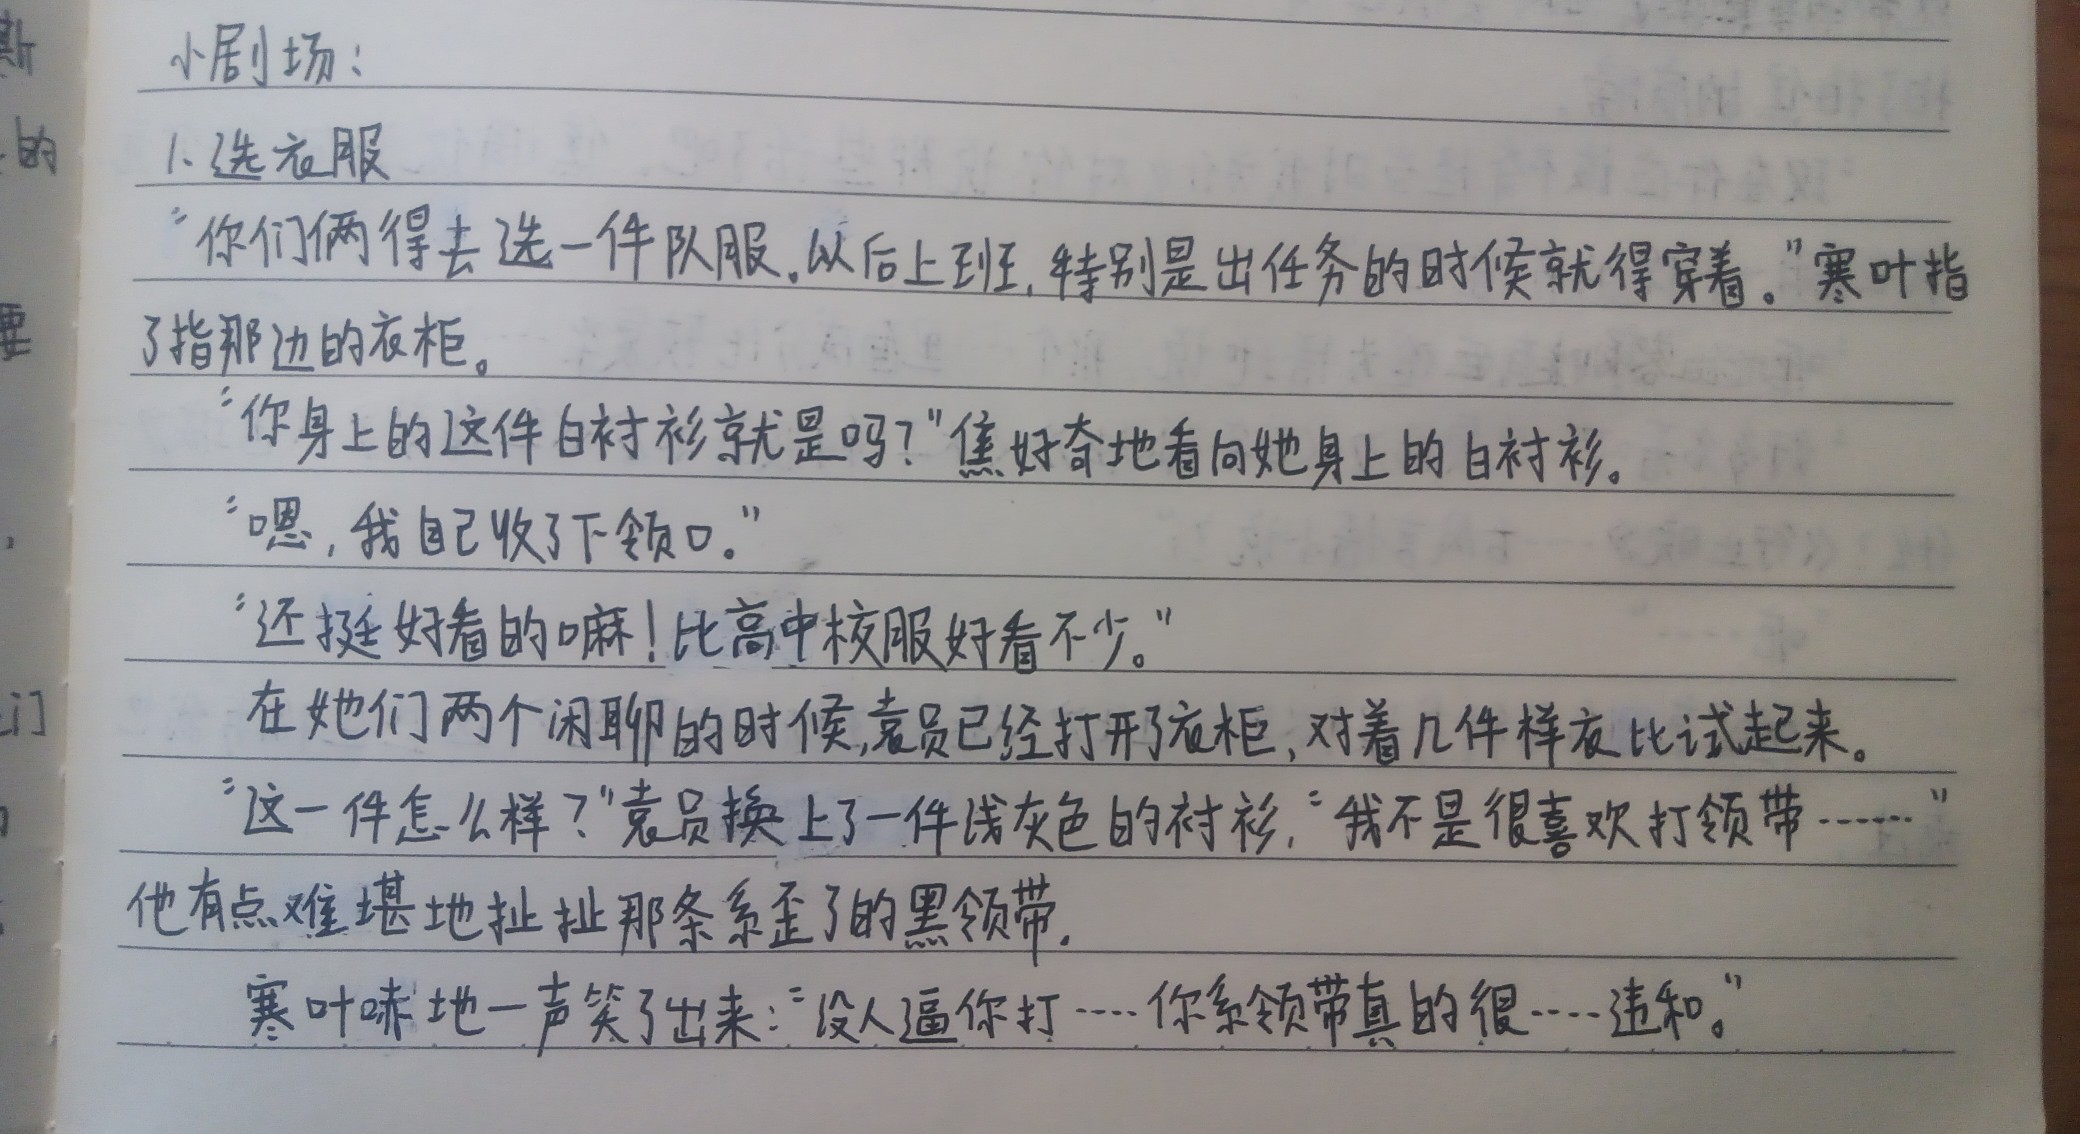 小剧场：
1、选衣服
“你们俩得去选一件队服。以后上班，特别是出任务的时候就得穿着。”寒叶指
了指那边的衣柜。
“你身上的这件白衬衫就是吗？”焦好奇地看向她身上的白衬衫。
“嗯，我自己收了下领口。”
“还挺好看的嘛！比高中校服好看不少。”
在她们两个闲聊的时候，袁员已经打开了衣柜，对着几件样衣比试起来。
“这一件怎么样？”袁员换上了一件浅灰色的衬衫，“我不是很喜欢打领带……”
他有点难堪地扯扯那条系歪了的黑领带。
寒叶哧地一声笑了出来：“没人逼你打……你系领带真的很……违和。”
斯
的
要
，
们